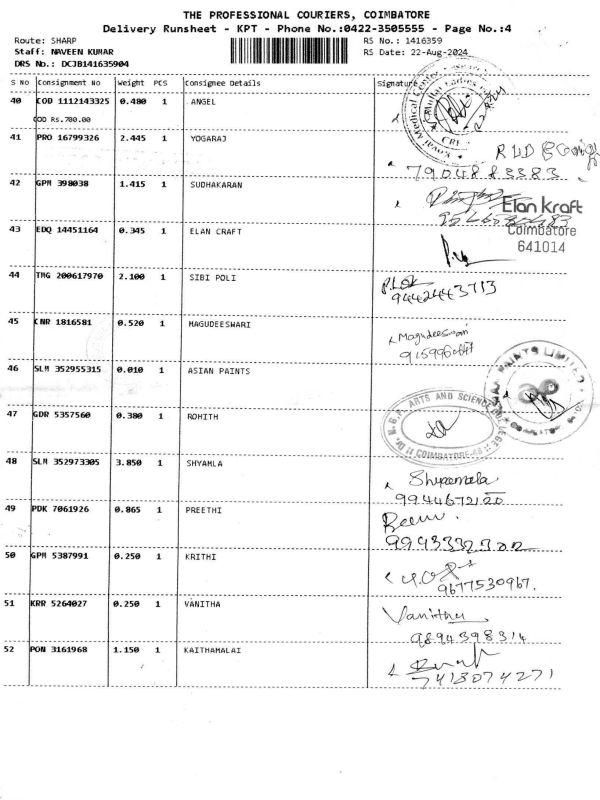 THE PROFESSIONAL COURIERS, COIMBATORE
Delivery Runsheet - KPT - Phone No.:0422-3505555 - Page No.:4
Route: SHARP RS No.: 1416359
Staff: NAVEEN KUMAR RS Date: 22-Aug-2024
DRS No.: DCJB141635904
S No Consignment No Weight PCS Consignee Details Signature
40 COD 1112143325 0.480 1 ANGEL
COD Rs.700.00
41 PRO 16799326 2.445 1 YOGARAJ
7904883383
42 GPM 398038 1.415 1 SUDHAKARAN
Elan Kraft
43 EDQ 14451164 0.345 1 ELAN CRAFT Coimbatore
641014
44 TMG 200617970 2.100 1 SIBI POLI
9442443713
45 CNR 1816581 0.520 1 MAGUDEESWARI Magudeeswari
46 SLM 352955315 0.010 1 ASIAN PAINTS
PAINTS LIMITED
47 GDR 5357560 0.380 1 ROHITH
ARTS AND SCIENCE COLLEGE
COIMBATORE
48 SLM 352973305 3.850 1 SHYAMLA Shyamala
9944672120
49 PDK 7061926 0.865 1 PREETHI
50 GPM 5387991 0.250 1 KRITHI
9677530967.
51 KRR 5264027 0.250 1 VANITHA Vanitha
9894398314
52 PON 3161968 1.150 1 KAITHAMALAI
7418074271